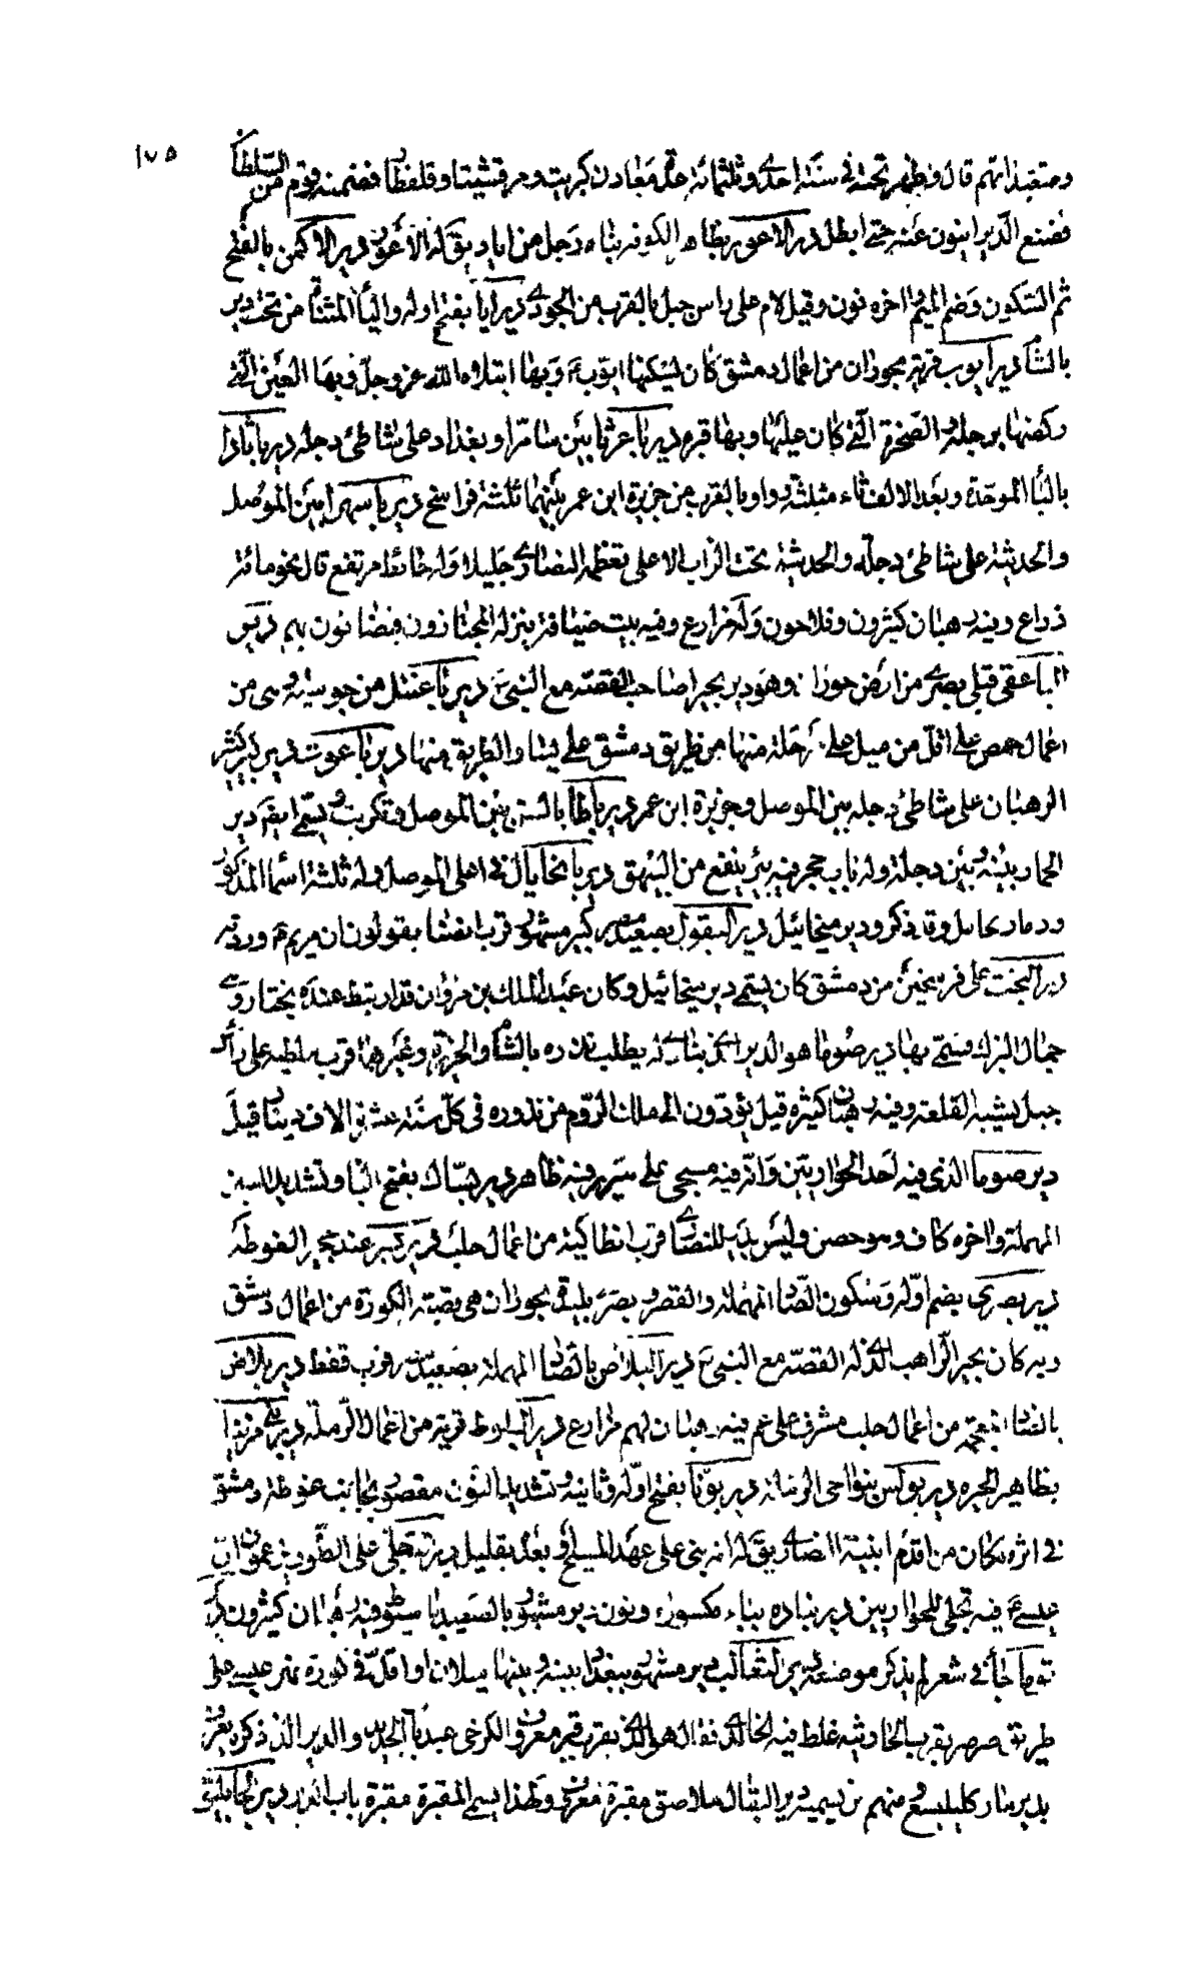 ١٧٥
ومتعبداتهم قال وظهر تحته في سنة احدى وثلثمائة عدة معادن كبريت ومرقشيتا وقلفطار فضمنه قوم من السلطان
فصنع الديرانيون عنه حتى ابطل دير الاعور بظاهر الكوفه بناه رجل من اياد يق له الاعور دير الاكمن بالفتح
ثم السكون وضم الميم واخره نون وقيل لام على راس جبل بالقرب من الجودي دير ايا بفتح اوله والياء المثناة من تحت دير
بالشام دير ايوب قرية بحوران من اعمال دمشق كان يسكنها ايوب ع وبها ابتلاه الله عز وجل وبها العين التي
ركضها برجله والصخرة التي كان عليها وبها قبره دير باعربا بين سامرا وبغداد على شاطئ دجله دير باثاوا
بالباء الموحدة وبعد الالف ثاء مثلثه وواو بالقرب من جزيرة ابن عمر بينهما ثلثة فراسخ دير باسهرا بين الموصل
والحديثه على شاطئ دجلة والحديثة تحت الزاب الاعلى تعظمه النصارى جليلا وله حائط مرتفع قال نحو مائة
ذراع وفيه رهبان كثيرون وفلاحون وله مزارع وفيه بيت ضيافة ينزله المجتازون فيضافون بهم دير
الباعقى قبلي بصرى من ارض حوران وهو دير بحيرا صاحب القصة مع النبي ص دير باعنتل من جوسيه وهي من
اعمال حمص على اقل من ميل على مرحلة منها من طريق دمشق على يسار الطريق منها دير باعوث دير كبير كثير
الرهبان على شاطئ دجله بين الموصل وجزيرة ابن عمر دير باطا بالسن بين الموصل وتكريت ويسمى ايضا دير
الحمار بينه وبين دجلة وله باب حجر فيه بئر ينفع من البهق دير بانخايال في اعلى الموصل وله ثلثة اسماء المذكور
ودير مار نخايل وقد ذكر ودير ميخائيل دير البقول بصعيد مصر كبير مشهور قرب انصنا يقولون ان مريم ع وردته
دير البخت على فرسخين من دمشق كان يسمى دير ميخائيل وكان عبد الملك بن مروان قد ارتبط عنده بختا وهي
جمال الترك فسمي بها دير صوما هو الدير الذي ينادى له بطلب نذره بالشام والجزيرة وغيرهما قرب ملطيه على راس
جبل يشبه القلعة وفيه رهبان كثيره قيل يؤدون الى ملك الروم من نذوره في كل سنة عشرة الاف دينار قيل
دير صوما الذي فيه احد الحواريين وانه فيه مسجى على سرير فيه ظاهر دير بساك بفتح الباء وتشديد السين
المهملة واخره كاف وهو حصن وليس بدير للنصارى قرب انطاكية من اعمال حلب دير بشر عند حجير الغوطة
دير بصرى بضم اوله وسكون الصاد المهملة والقصر وبصرى بليدة بحوران هي قصبة الكورة من اعمال دمشق
وبه كان بحيرا الراهب الذي له القصة مع النبي ص دير البلاص بالصاد المهملة بصعيد مصر قرب قفط دير بلاض
بالضاد المعجمة من اعمال حلب مشرف على عم فيه رهبان لهم مزارع دير البلوط قرية من اعمال الرملة دير بني مرينا
بظاهر الحيره دير بولس بنواحي الرملة دير بونا بفتح اوله وثانيه وتشديد النون مقصور بجانب غوطة دمشق
في انزه مكان من اقدم ابنية النصارى يق له انه بني على عهد المسيح ع او بعده بقليل دير تجلى على الطور يزعمون ان
عيسى ع فيه تجلى للحواريين دير تنادة بتاء مكسورة ونون دير مشهور بالصعيد باسيوط وفيه رهبان كثيرون دير
توما جاء في شعر لم يذكر موضعه دير الثعالب دير مشهور ببغداد بينه وبينها ميلان او اقل في كورة نهر عيسى على
طريق صرصر بقربه الحارثيه غلط فيه الخالدي فقال هو الذي بقرب قبر معروف الكرخي عند باب الحديد والدير الذي ذكره يعرف
بدير مار كليليسوع ومنهم من يسميه دير البقال ملاصق مقبرة معروف ولهذا يسمى المقبرة مقبرة باب الدير دير الجاثليق